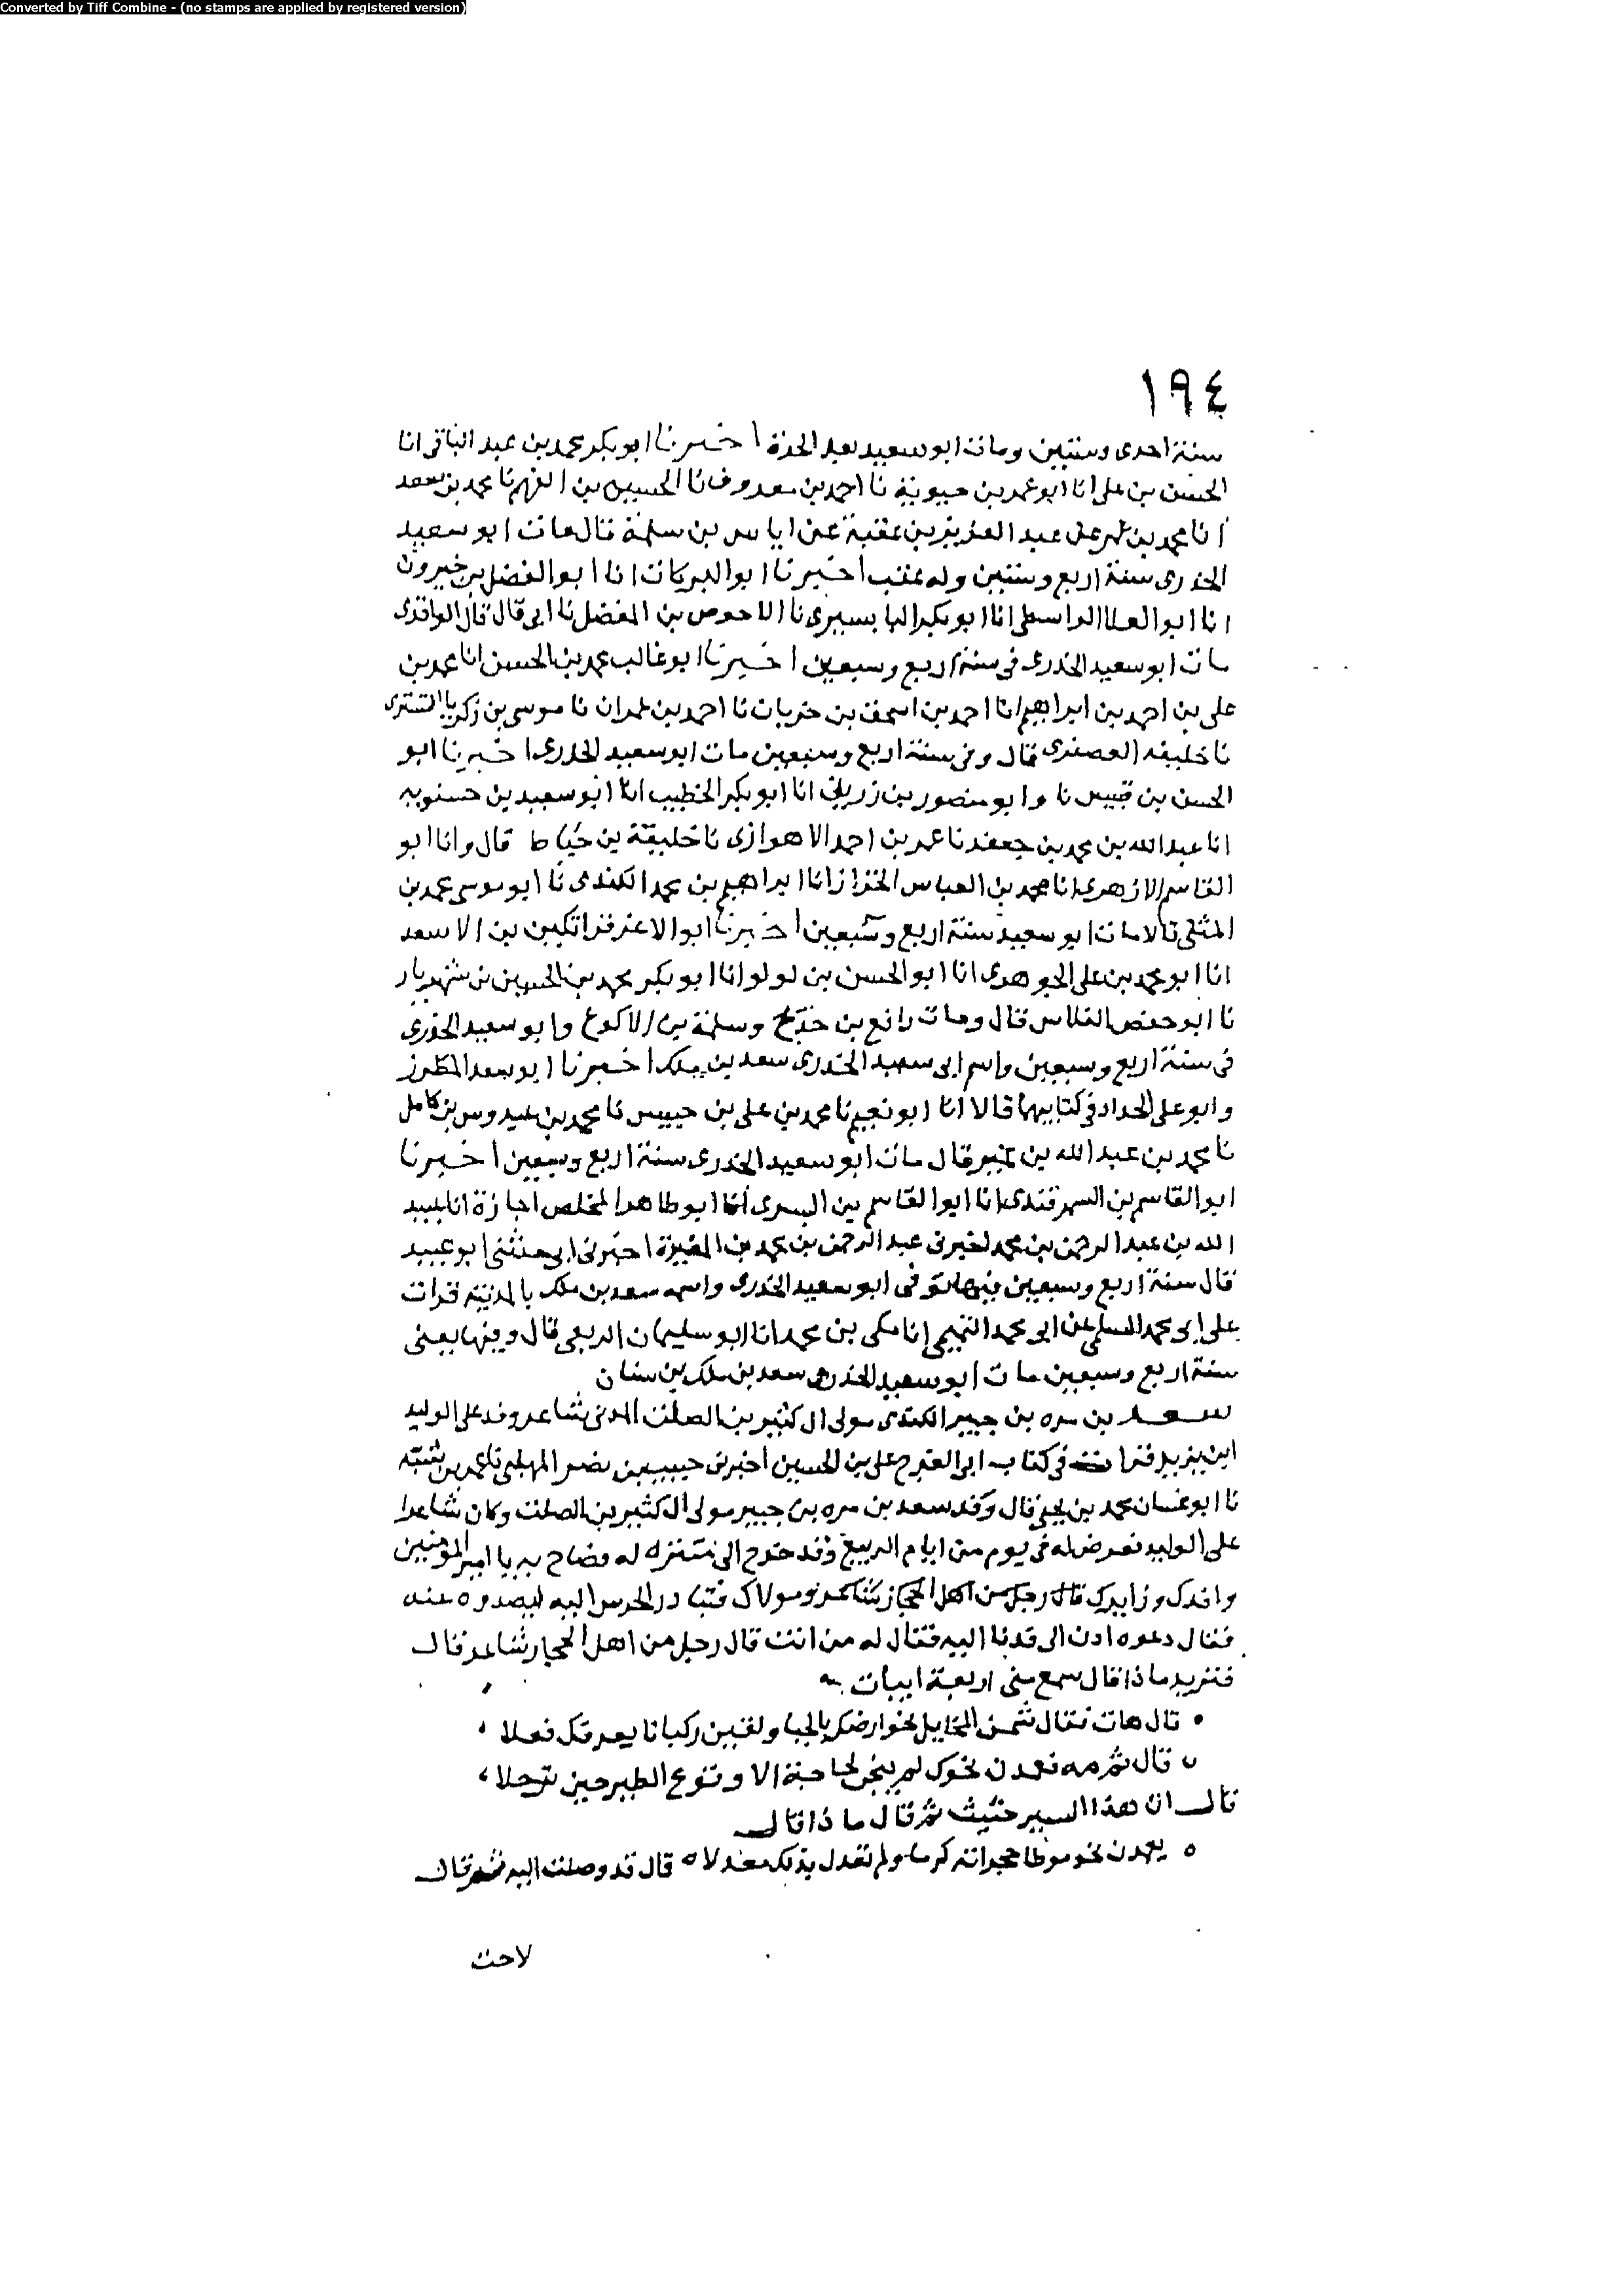 Converted by Tiff Combine - (no stamps are applied by registered version)
١٩٤
سنة احدى وستين ومات ابو سعيد بعد الحرة اخبرنا ابو بكر محمد بن عبد الباقى انا
الحسن بن على انا ابو عمر بن حيوية نا احمد بن معروف انا الحسين بن الفهم نا محمد بن سعد
انا محمد بن عمر عن عبد العزيز بن عقبة عن اياس بن سلمة قال مات ابو سعيد
الخدرى سنة اربع وستين وله عقب اخبرنا ابو البركات انا ابو الفضل بن خيرون
انا ابو العلا الواسطى انا ابو بكر البابسيرى نا الاحوص بن المفضل نا ابى قال قال الواقدى
مات ابو سعيد الخدرى فى سنة اربع وسبعين اخبرنا ابو غالب محمد بن الحسن انا محمد بن
على بن احمد بن ابراهيم انا احمد بن اسحق بن خربان نا احمد بن عمران نا موسى بن زكريا التسترى
نا خليفه العصفرى قال وفى سنة اربع وسبعين مات ابو سعيد الخدرى اخبرنا ابو
الحسن بن قبيس نا وابو منصور بن زريق انا ابو بكر الخطيب انا ابو سعيد بن حسنويه
انا عبد الله بن محمد بن جعفر نا عمر بن احمد الاهوازى نا خليفة بن خياط قال وانا ابو
القاسم الازهرى انا محمد بن العباس الخزاز انا ابراهيم بن محمد الكندى نا ابو موسى محمد بن
المثنى قالا مات ابو سعيد سنة اربع وسبعين اخبرنا ابو الاعز قراتكين بن الاسعد
انا ابو محمد بن على الجوهرى انا ابو الحسن بن لولو انا ابو بكر محمد بن الحسين بن شهريار
نا ابو حفص الفلاس قال ومات رافع بن خديج وسلمة بن الاكوع وابو سعيد الخدرى
فى سنة اربع وسبعين واسم ابى سعيد الخدرى سعد بن ملك اخبرنا ابو سعد المطرز
وابو على الحداد فى كتابيهما قالا انا ابو نعيم نا محمد بن على بن حبيش نا محمد بن عبدوس بن كامل
نا محمد بن عبد الله بن نمير قال مات ابو سعيد الخدرى سنة اربع وسبعين اخبرنا
ابو القاسم بن السمرقندى انا ابو القاسم بن البسرى انا ابو طاهر المخلص اجازة انا عبيد
الله بن عبد الرحمن بن محمد اخبرنى عبد الرحمن بن محمد بن المغيرة اخبرنى ابى حدثنى ابو عبيد
قال سنة اربع وسبعين فيها توفى ابو سعيد الخدرى واسمه سعد بن ملك بالمدينة قرات
على ابى محمد السلمى عن ابى محمد التميمى انا مكى بن محمد انا ابو سليمان الربعى قال وفيها يعنى
سنة اربع وسبعين مات ابو سعيد الخدرى سعد بن ملك بن سنان
سعد بن مره بن جبير الكندى مولى ال كثير بن الصلت المدنى شاعر وفد على الوليد
ابن يزيد قرات فى كتاب ابى الفرج على بن الحسين اخبرنى حبيب بن نصر المهلبى نا عمر بن شبه
نا ابو غسان محمد بن يحيى قال وفد سعد بن مره بن جبير مولى ال كثير بن الصلت وكان شاعرا
على الوليد فعرض له فى يوم من ايام الربيع وقد خرج الى متنزه له فصاح به يا امير المومنين
وافدك وزايرك قال رجل من اهل الحجاز ومولاك فتبادر الحرس اليه ليصدوه عنه
فقال دعوه ادن الى فدنا اليه فقال له من انت قال رجل من اهل الحجاز شاعر قال
فتريد ماذا قال تسمع منى اربعة ابيات
قال هات فقال شمن المخايل نحو ارضك بالحيا ولقين ركبانا بعرفك قفلا
قال ثم مه فعمدن نحوك لم ينخن لحاجة الا وقوع الطير حين ترحلا
قال ان هذا السير حثيث ثم قال ماذا قال
يعمدن نحو موطا حجراته كرما ولم تعدل بذلك معدلا قال قد وصلت اليه ثم قال
لاحت